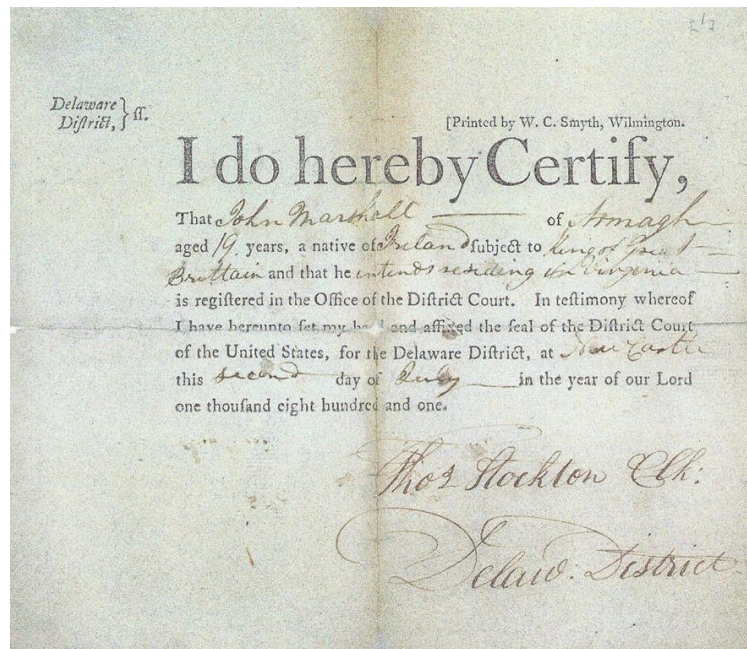 Delaware
District, } ss.
[Printed by W. C. Smyth, Wilmington.
I do hereby Certify,
That John Marshall of Armagh
aged 19 years, a native of Ireland subject to King of Great
Brittain and that he intends residing in Virginia
is regiſtered in the Office of the Diſtrict Court. In teſtimony whereof
I have hereunto ſet my hand and affixed the ſeal of the Diſtrict Court
of the United States, for the Delaware Diſtrict, at New Castle
this second day of July in the year of our Lord
one thouſand eight hundred and one.
Thos Stockton Clk:
Delaw: District